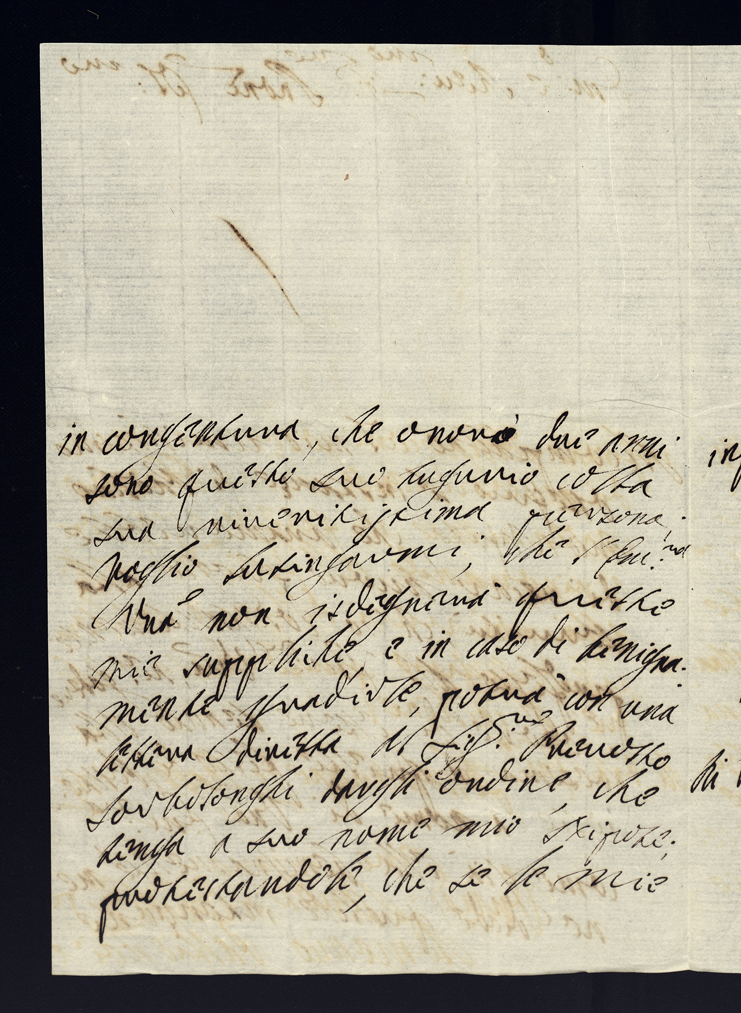 in congentura, che onorò due anni
sono questo suo tugurio colla
sua riveritissima persona.
Voglio lusingarmi, che l'Em:za
Vra non isdegnerà queste
mie suppliche, e in caso di benigna-
mente gradirle, potrà con una
lettera diretta al Sig:re Prevosto
Sorbolonghi dargli ordine, che
tenga a suo nome mio Nipote;
protestandole, che se le mie